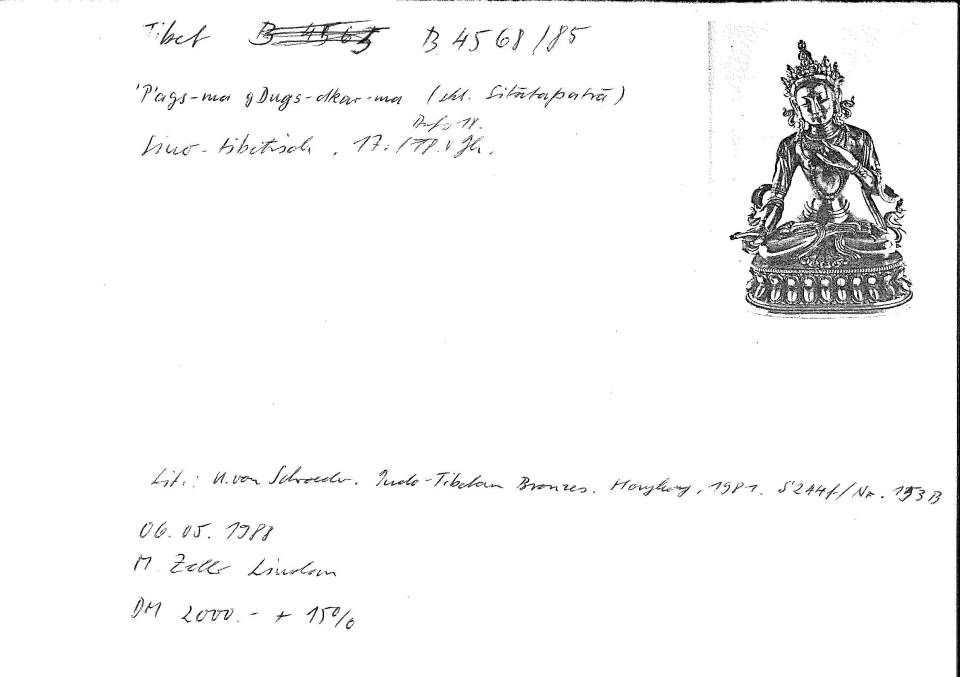 Tibet B 4565 B 4568/85
'P'ags-ma gDugs-dkar-ma (skt. Sitātapatrā)
Anfg 18.
Sino-tibetisch, 17./18. Jh.
Lit.: U. von Schroeder. Indo-Tibetan Bronzes. Hongkong, 1981. S 244f/Nr. 153 B
06.05.1988
M. Zeller Lindau
DM 2000.- + 15%